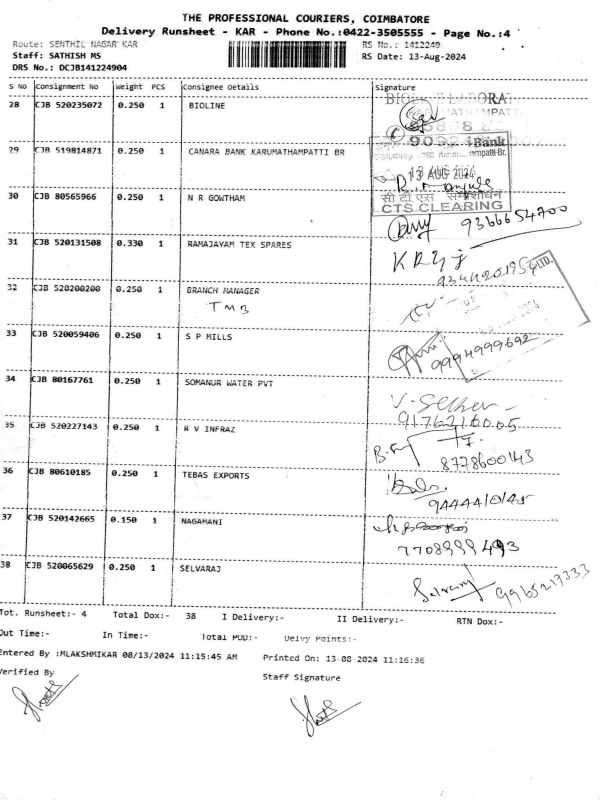 THE PROFESSIONAL COURIERS, COIMBATORE
Delivery Runsheet - KAR - Phone No.:0422-3505555 - Page No.:4
Route: SENTHIL NAGAR KAR RS No.: 1412249
Staff: SATHISH MS RS Date: 13-Aug-2024
DRS No.: DCJB141224904
S No Consignment No Weight PCS Consignee Details Signature
28 CJB 520235072 0.250 1 BIOLINE
29 CJB 519814871 0.250 1 CANARA BANK KARUMATHAMPATTI BR
Bank
13 AUG 2024
सी टी एस समाशोधन
CTS CLEARING
30 CJB 80565966 0.250 1 N R GOWTHAM
9366654700
31 CJB 520131508 0.330 1 RAMAJAYAM TEX SPARES
32 CJB 520200200 0.250 1 BRANCH MANAGER
TMB
33 CJB 520059406 0.250 1 S P MILLS
9994999692
34 CJB 80167761 0.250 1 SOMANUR WATER PVT
9176216005
35 CJB 520227143 0.250 1 R V INFRAZ
8778600143
36 CJB 80610185 0.250 1 TEBAS EXPORTS
37 CJB 520142665 0.150 1 NAGAMANI
38 CJB 520065629 0.250 1 SELVARAJ
Selvaraj 9965217333
Tot. Runsheet:- 4 Total Dox:- 38 I Delivery:- II Delivery:- RTN Dox:-
Out Time:- In Time:- Total POD:- Delvy Points:-
Entered By :MLAKSHMIKAR 08/13/2024 11:15:45 AM Printed On: 13-08-2024 11:16:36
Verified By Staff Signature